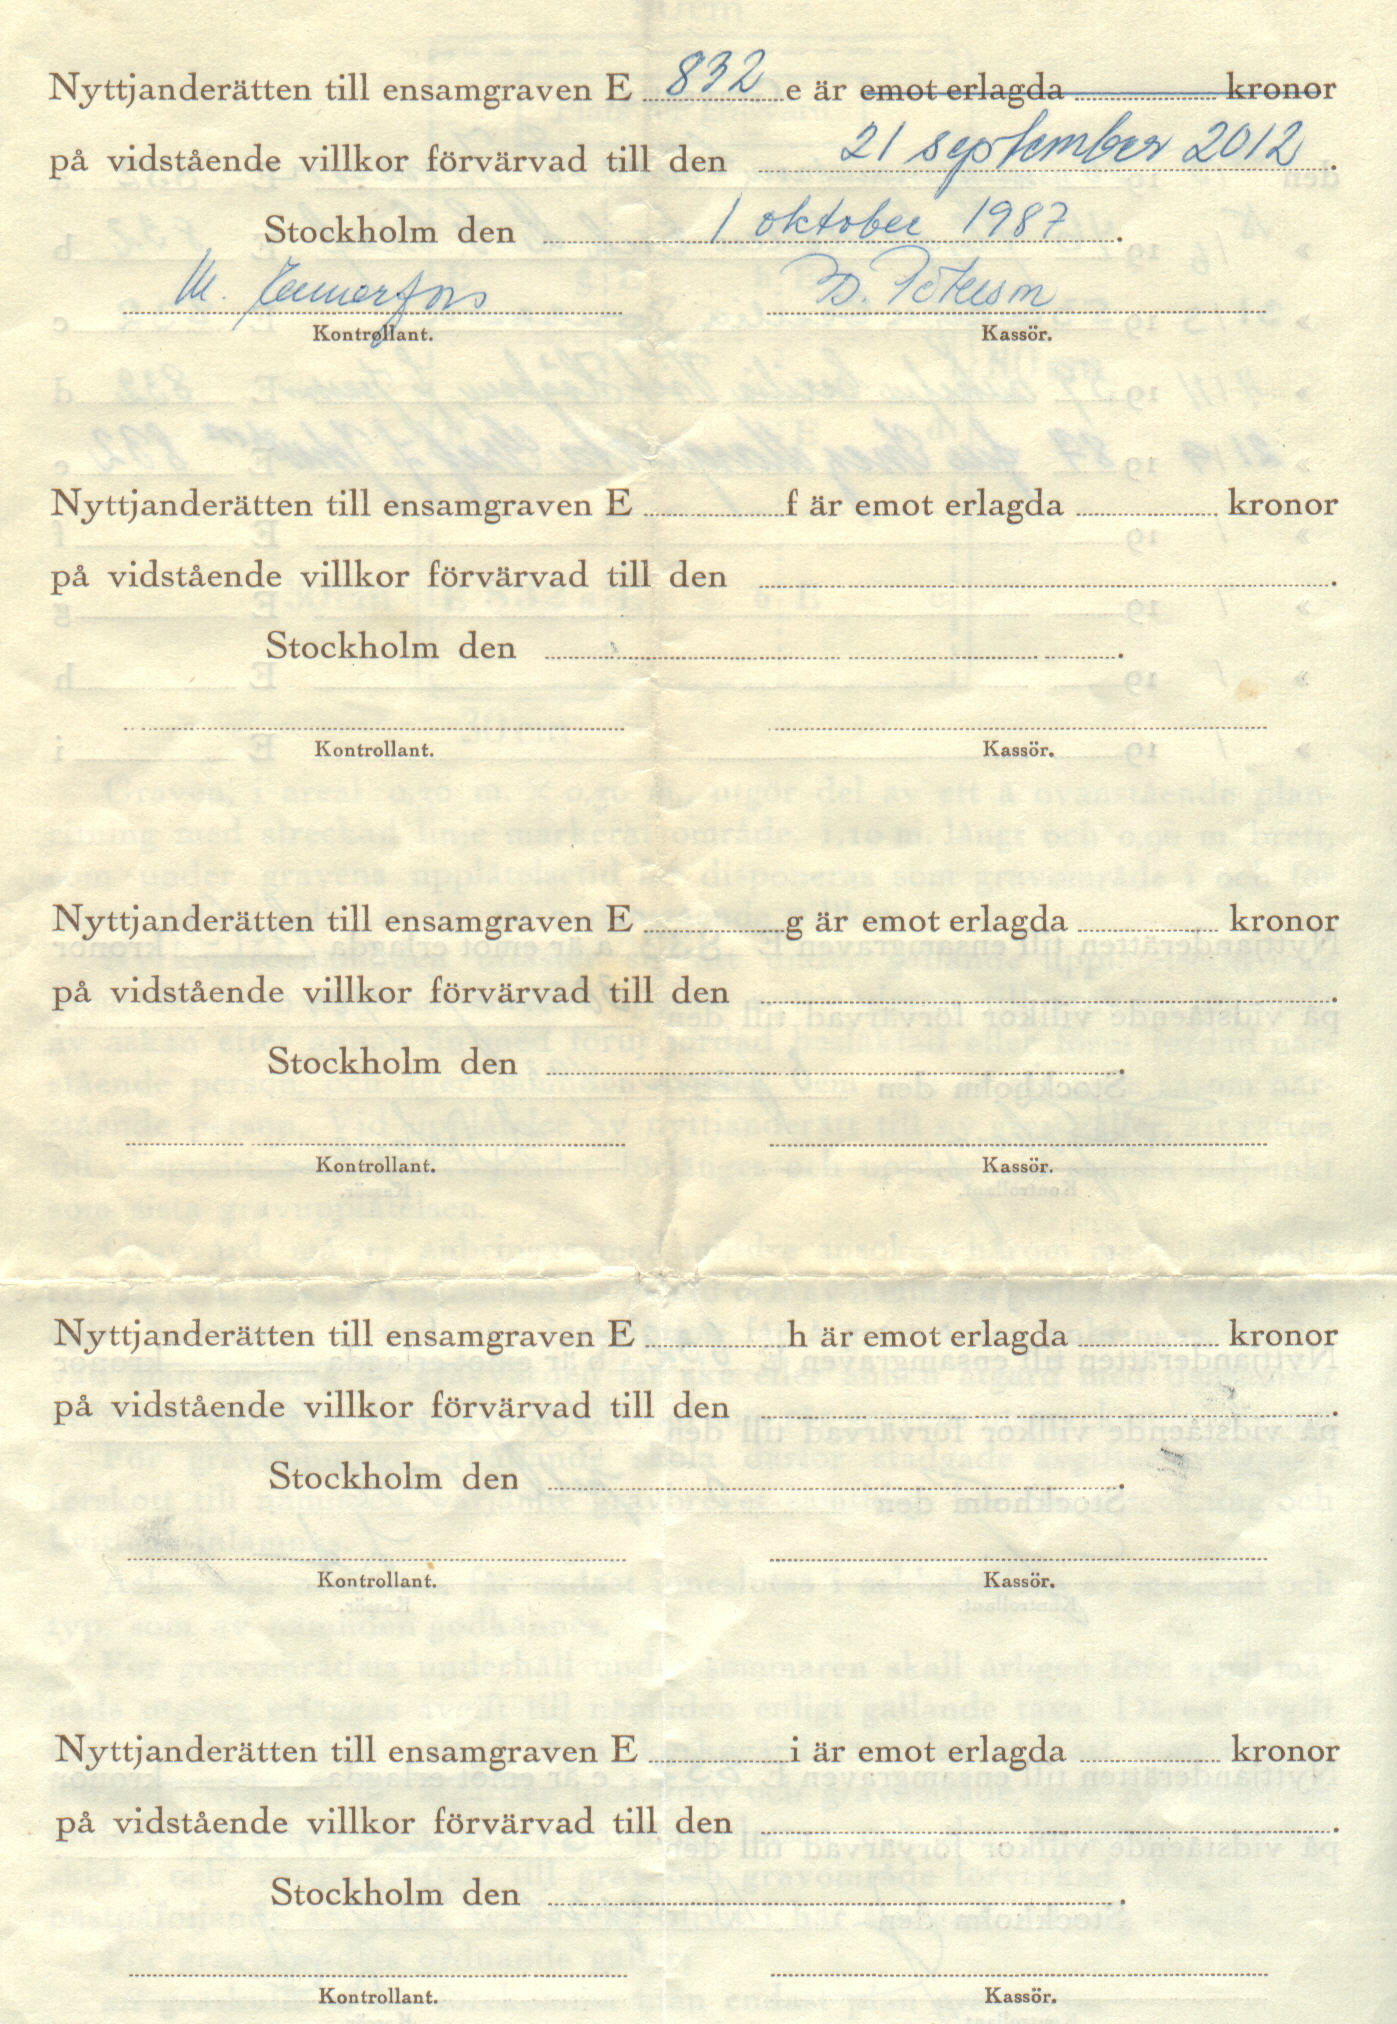 Nyttjanderätten till ensamgraven E 832 e är emot erlagda kronor
på vidstående villkor förvärvad till den 21 september 2012.
Stockholm den 1 oktober 1987.
M. B. Peterson
Kontrollant. Kassör.
Nyttjanderätten till ensamgraven E f är emot erlagda kronor
på vidstående villkor förvärvad till den .
Stockholm den .
Kontrollant. Kassör.
Nyttjanderätten till ensamgraven E g är emot erlagda kronor
på vidstående villkor förvärvad till den .
Stockholm den .
Kontrollant. Kassör.
Nyttjanderätten till ensamgraven E h är emot erlagda kronor
på vidstående villkor förvärvad till den .
Stockholm den .
Kontrollant. Kassör.
Nyttjanderätten till ensamgraven E i är emot erlagda kronor
på vidstående villkor förvärvad till den .
Stockholm den .
Kontrollant. Kassör.